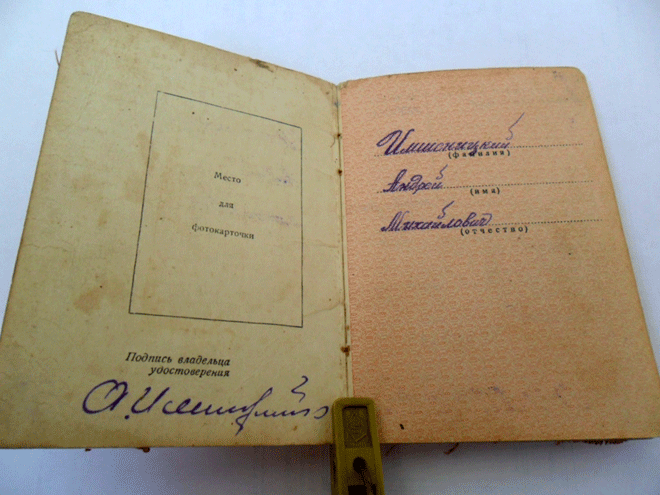 Место
для
фотокарточки
Подпись владельца
удостоверения
Имшеницкий
(фамилия)
Андрей
(имя)
Михайлович
(отчество)